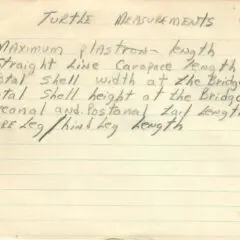 TURTLE MEASUREMENTS
MAXIMUM plastron length
Straight Line Carapace length
otal shell width at the Bridge
otal shell height at the Bridge
econal and Postanal Tail Length
RE Leg / hind Leg Length